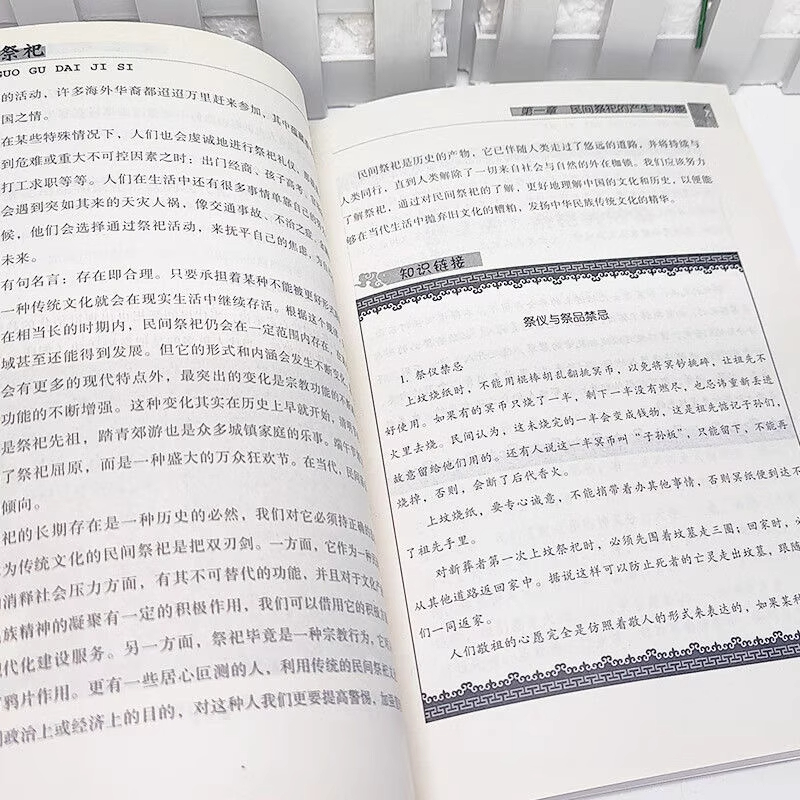 祭祀
GUO GU DAI JI SI
的活动，许多海外华裔都迢迢万里赶来参加，其中蕴藏
国之情。
在某些特殊情况下，人们也会虔诚地进行祭祀礼仪，
到危难或重大不可控因素之时：出门经商、孩子高考、
打工求职等等。人们在生活中还有很多事情单靠自己的
会遇到突如其来的天灾人祸，像交通事故、不治之症、
候，他们会选择通过祭祀活动，来抚平自己的焦虑，为
未来。
有句名言：存在即合理。只要承担着某种不能被更好形式
一种传统文化就会在现实生活中继续存活。根据这个规
在相当长的时期内，民间祭祀仍会在一定范围内存在，
域甚至还能得到发展。但它的形式和内涵会发生不断变化，
会有更多的现代特点外，最突出的变化是宗教功能的不断
功能的不断增强。这种变化其实在历史上早就开始，清明
是祭祀先祖，踏青郊游也是众多城镇家庭的乐事。端午节
了祭祀屈原，而是一种盛大的万众狂欢节。在当代，民间
倾向。
祀的长期存在是一种历史的必然，我们对它必须持正确的
为传统文化的民间祭祀是把双刃剑。一方面，它作为一种
消释社会压力方面，有其不可替代的功能，并且对于文化
族精神的凝聚有一定的积极作用，我们可以借用它的积极
代化建设服务。另一方面，祭祀毕竟是一种宗教行为，它
鸦片作用。更有一些居心叵测的人，利用传统的民间祭祀
政治上或经济上的目的，对这种人我们更要提高警惕，加强
第一章 民间祭祀的产生与功能
民间祭祀是历史的产物，它已伴随人类走过了悠远的道路，并将持续与
人类同行，直到人类解除了一切来自社会与自然的外在枷锁。我们应该努力
了解祭祀，通过对民间祭祀的了解，更好地理解中国的文化和历史，以便能
够在当代生活中抛弃旧文化的糟粕，发扬中华民族传统文化的精华。
知识链接
祭仪与祭品禁忌
1. 祭仪禁忌
上坟烧纸时，不能用棍棒胡乱翻挑冥币，以免将冥钞挑碎，让祖先不
好使用。如果有的冥币只烧了一半，剩下一半没有燃尽，也忌讳重新丢进
火里去烧。民间认为，这未烧完的一半会变成钱物，这是祖先惦记子孙们，
故意留给他们用的。还有人说这一半冥币叫“子孙板”，只能留下，不能再
烧掉，否则，会断了后代香火。
上坟烧纸，要专心诚意，不能捎带着办其他事情，否则冥纸便到达不
了祖先手里。
对新葬者第一次上坟祭祀时，必须先围着坟墓走三圈；回家时，必
从其他道路返回家中。据说这样可以防止死者的亡灵走出坟墓，跟随
们一同返家。
人们敬祖的心愿完全是仿照着敬人的形式来表达的，如果某种